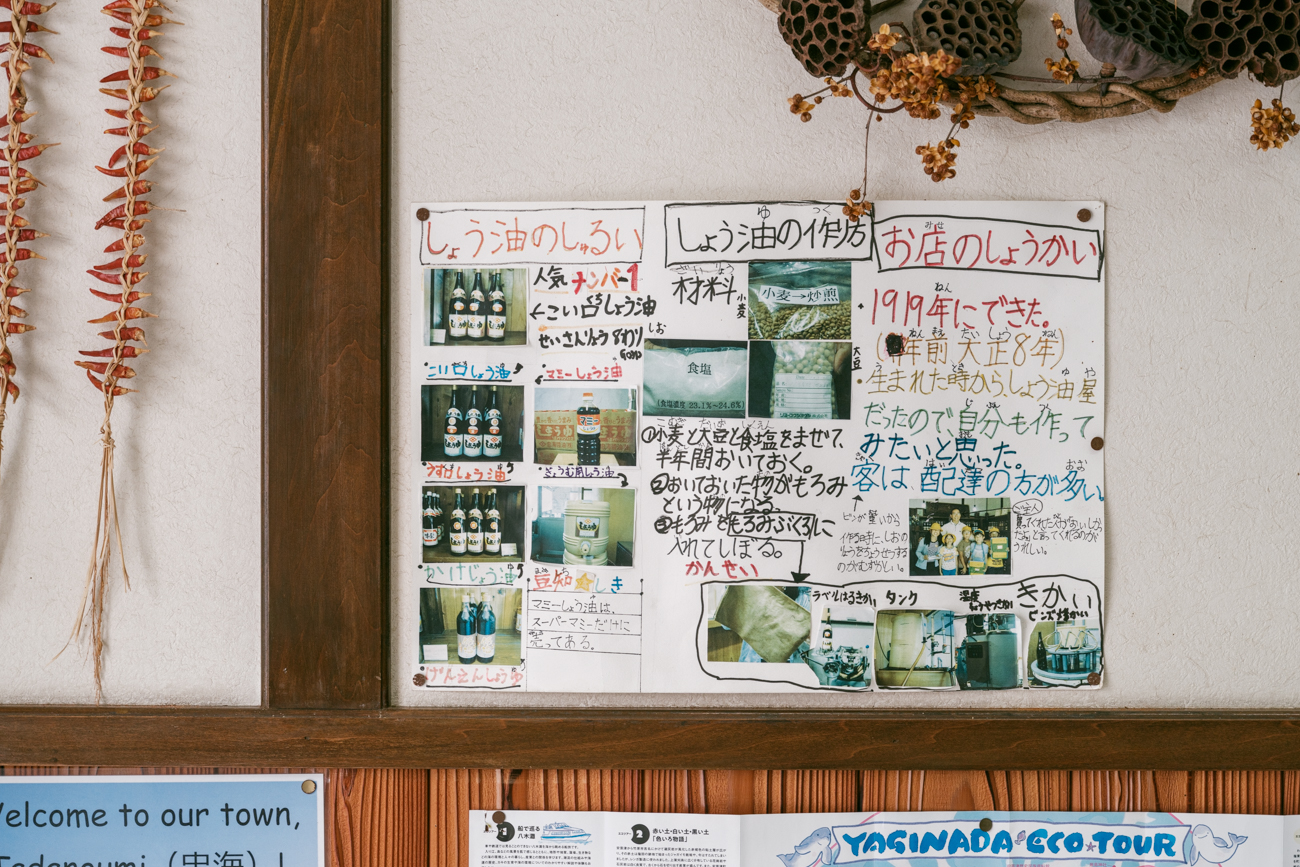 しょう油のしゅるい
人気ナンバー1
←こい口しょう油
せいさんりょう8わり
こい口しょう油
マミーしょう油
うすがしょう油
かけじょう油
豆知☆しき
マミーしょう油は、
スーパーマミーだけに
売ってある。
げんえんしょうゆ
しょう油の作り方
材料
小麦
小麦→炒煎
大豆
食塩
(食塩濃度 23.1%~24.6%)
①小麦と大豆と食塩をまぜて、
半年間おいておく。
②おいておいた物がもろみ
という物になる。
③もろみをもろみぶくろに
入れてしぼる。
かんせい
お店のしょうかい
・1919年にできた。
年前 大正8年)
・生まれた時から、しょう油屋
だったので、自分も作って
みたいと思った。
客は、配達の方が多い
ビンが重いから
きかい
ラベルはるきかい
タンク
Welcome to our town,
Tadanoumi (忠海) !
1
船で巡る
八木灘
2
赤い土・白い土・黒い土
「色いろ物語」
YAGINADA ECO TOUR